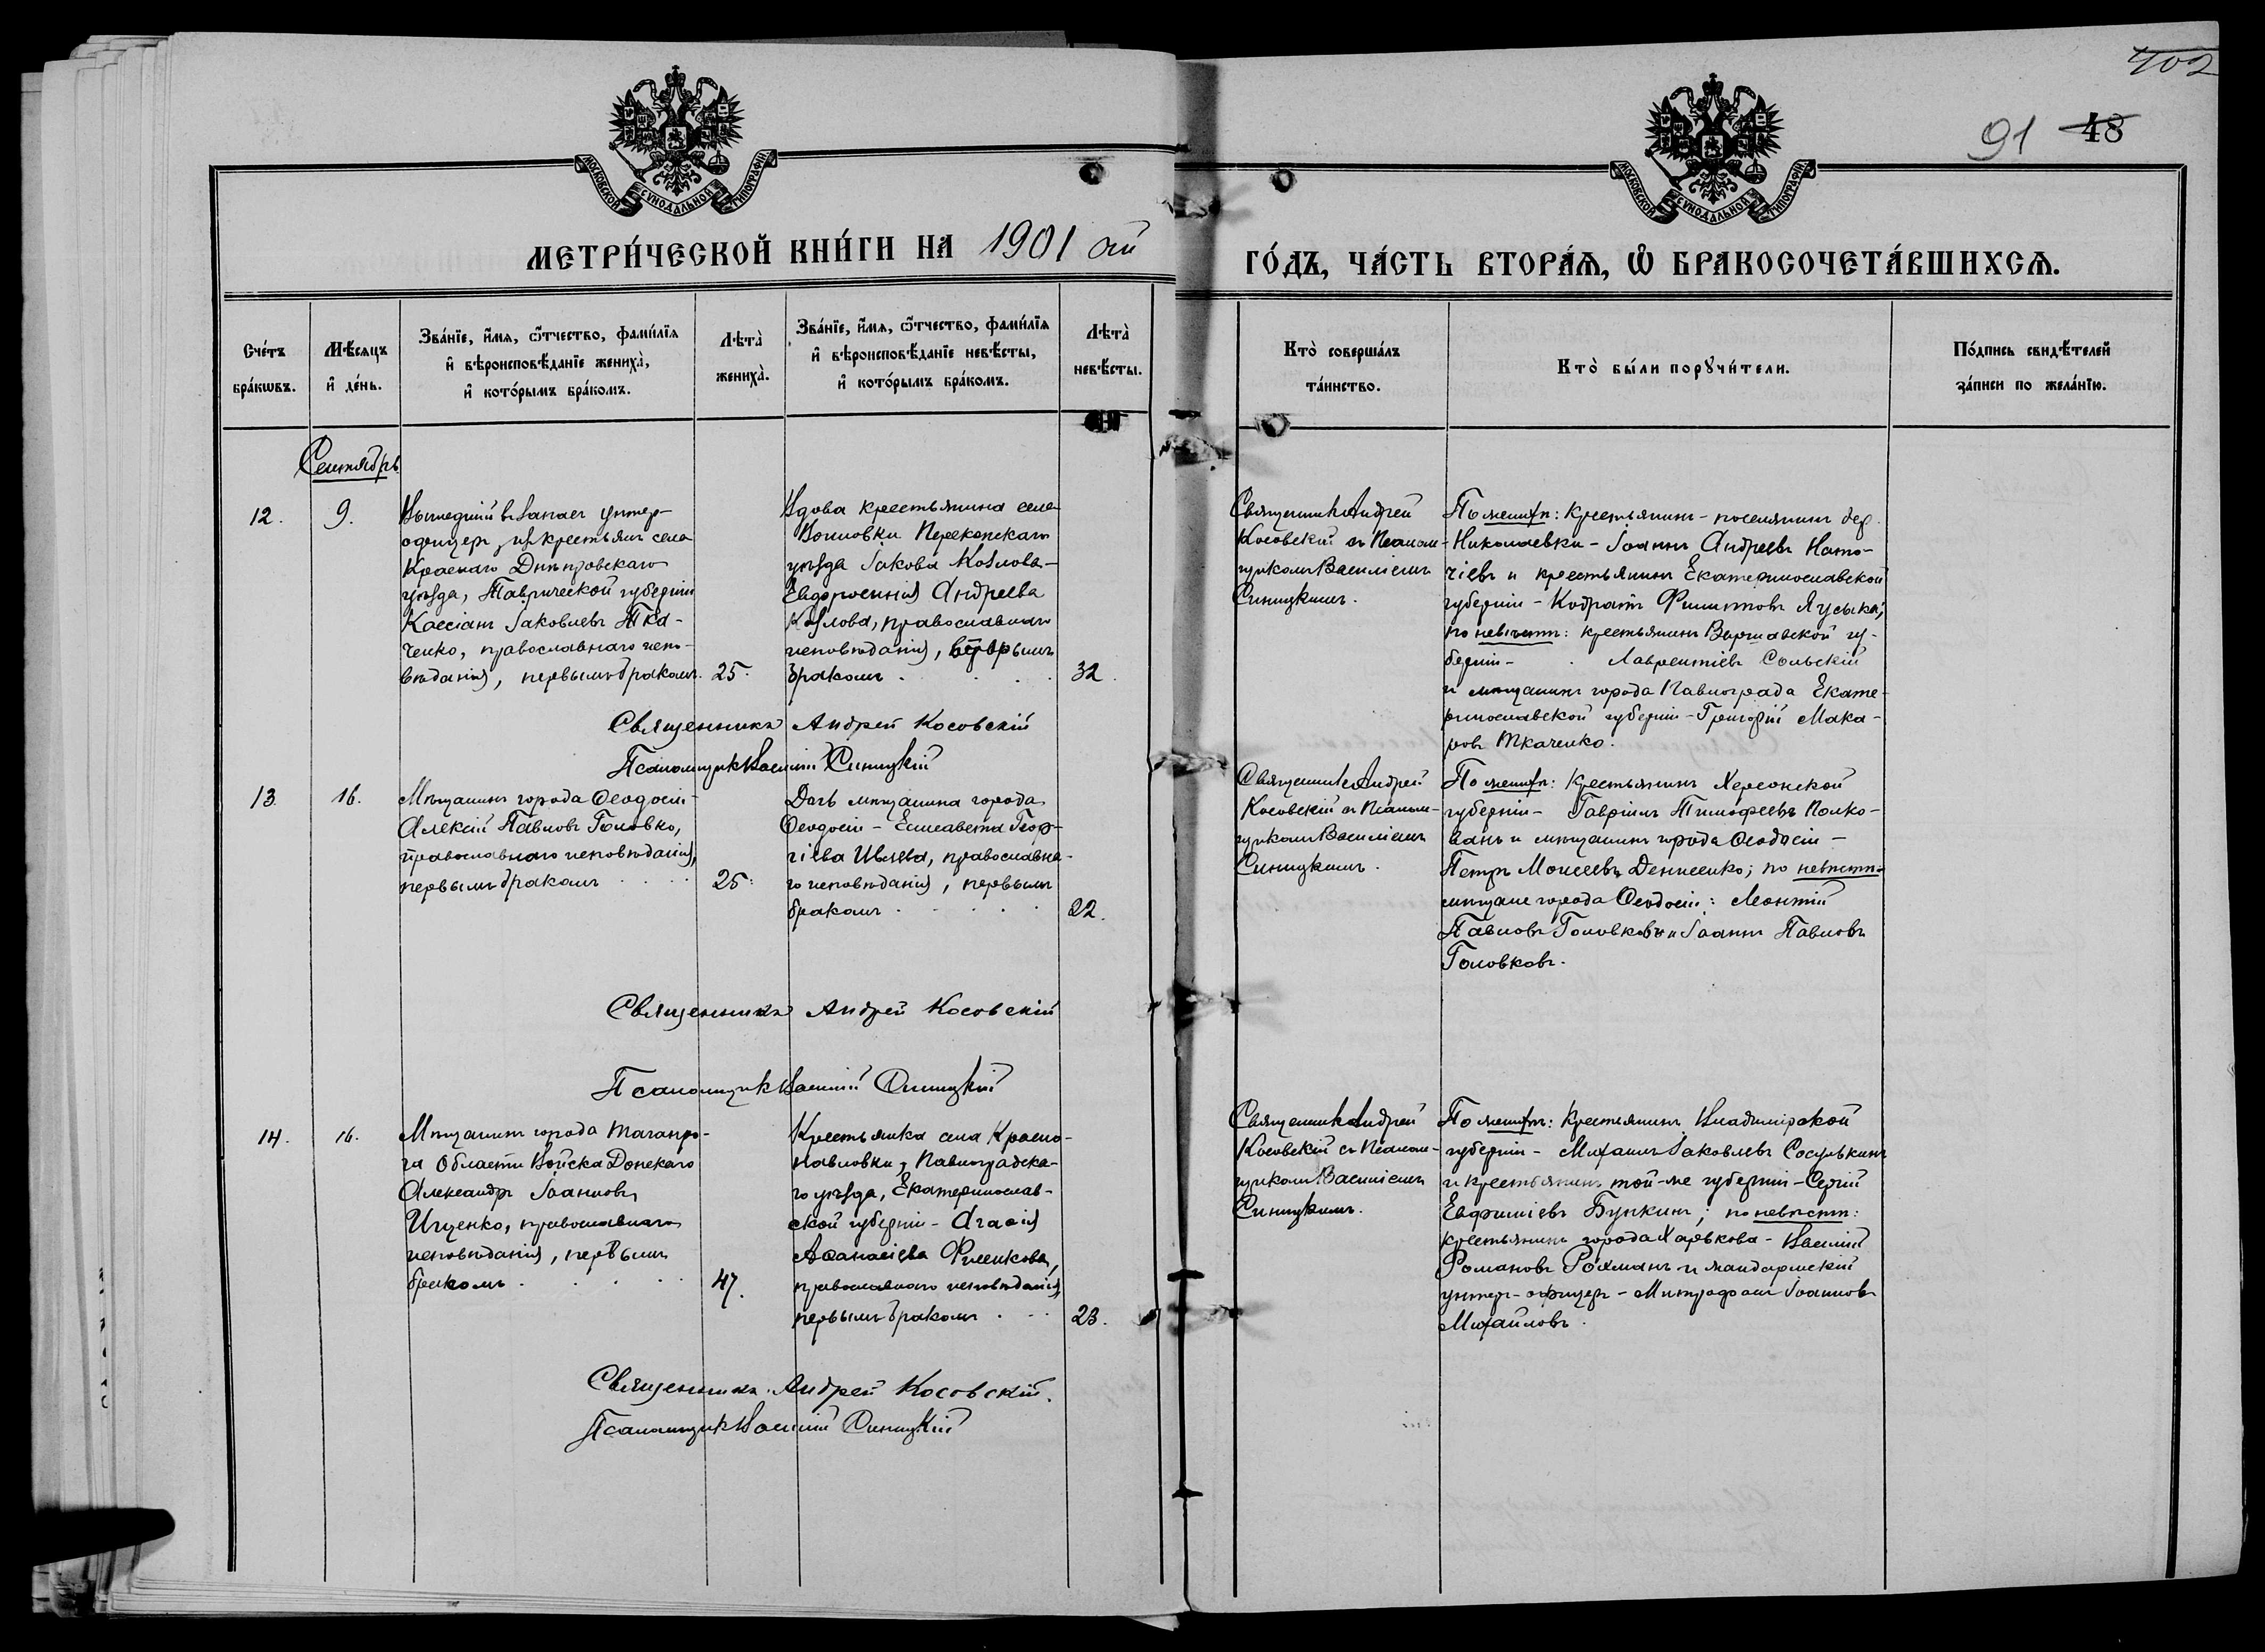 402
91 48
МОСКОВСКОЙ СѴНОДАЛЬНОЙ ТИПОГРАФІИ
МОСКОВСКОЙ СѴНОДАЛЬНОЙ ТИПОГРАФІИ
МЕТРИ́ЧЕСКОЙ КНИ́ГИ НА 1901 ой
ГО́ДЪ, ЧА́СТЬ ВТОРА́Ѧ, Ѡ҆ БРАКОСОЧЕТА́ВШИХСѦ.
Сче́тъ бра́кωвъ.
Мѣ́сѧцъ и҆ де́нь.
Зва́нїе, и҆́мѧ, ѻ҆́тчество, фами́лїѧ и҆ вѣроисповѣ́данїе жениха̀, и҆ кото́рымъ бра́комъ.
Лѣта̀ жениха̀.
Зва́нїе, и҆́мѧ, ѻ҆́тчество, фами́лїѧ и҆ вѣроисповѣ́данїе невѣ́сты, и҆ кото́рымъ бра́комъ.
Лѣта̀ невѣ́сты.
Кто̀ соверша́лъ та́инство.
Кто̀ бы́ли порꙋчи́тели.
По́дпись свидѣ́телей за́писи по жела́нїю.
Сентябрь
12.
9.
Вышедшій въ запасъ унтеръ-
офицеръ, изъ крестьянъ села
Краснаго Днѣпровскаго
уѣзда, Таврической губерніи
Кассіанъ Іаковлевъ Тка-
ченко, православнаго испо-
вѣданія, первымъ бракомъ.
25.
Вдова крестьянина села
Воиновки Перекопскаго
уѣзда Іакова Козлова-
Евдросинія Андреева
Козлова, православнаго
исповѣданія, вторымъ
бракомъ.
32.
Священникъ Андрей
Косовскій съ Псалом-
щикомъ Василіемъ
Синицкимъ.
По женихѣ: крестьянинъ-поселянинъ дер.
Николаевки - Іоаннъ Андреевъ
и крестьянинъ Екатеринославской
губерніи - Кодратъ Филиповъ
по невѣстѣ: крестьянинъ Варшавской гу-
берніи - Лаврентіевъ Сольскій
и мѣщанинъ города Павлограда Екате-
ринославской губерніи - Григорій Мака-
ровъ Ткаченко.
Священникъ Андрей Косовскій
Псаломщикъ Василій Синицкій
13.
16.
Мѣщанинъ города Ѳеодосіи-
Алексій Павловъ Головко,
православнаго исповѣданія,
первымъ бракомъ
25.
Дочь мѣщанина города
Ѳеодосіи - Елисавета Геор-
гіева Ивлева, православна-
го исповѣданія, первымъ
бракомъ
22.
Священникъ Андрей
Косовскій съ Псалом-
щикомъ Василіемъ
Синицкимъ.
По женихѣ: крестьянинъ Херсонской
губерніи - Гавріилъ Тимофеевъ Полко-
ванъ и мѣщанинъ города Ѳеодосіи -
Петръ Моисеевъ Денисенко; по невѣстѣ-
мѣщане города Ѳеодосіи: Леонтій
Павловъ Головковъ и Іоаннъ Павловъ
Головковъ.
Священникъ Андрей Косовскій
Псаломщикъ Василій Синицкій
14.
16.
Мѣщанинъ города Таганро-
га Области Войска Донскаго
Александръ Іоанновъ
Ищенко, православнаго
исповѣданія, первымъ
бракомъ
47.
Крестьянка села Красно-
павловки, Павлоградска-
го уѣзда, Екатеринослав-
ской губерніи - Агаѳія
Аѳанасіева Филенкова,
православнаго исповѣданія,
первымъ бракомъ
23.
Священникъ Андрей
Косовскій съ Псалом-
щикомъ Василіемъ
Синицкимъ.
По женихѣ: крестьянинъ Владимірской
губерніи - Михаилъ Іаковлевъ Сосулькинъ
и крестьянинъ той-же губерніи - Сергій
Евфиміевъ Бункинъ; по невѣстѣ:
крестьянинъ города Харькова - Василій
Романовъ Рохманъ и жандармскій
унтеръ-офицеръ - Митрофанъ Іоанновъ
Михайловъ.
Священникъ Андрей Косовскій.
Псаломщикъ Василій Синицкій